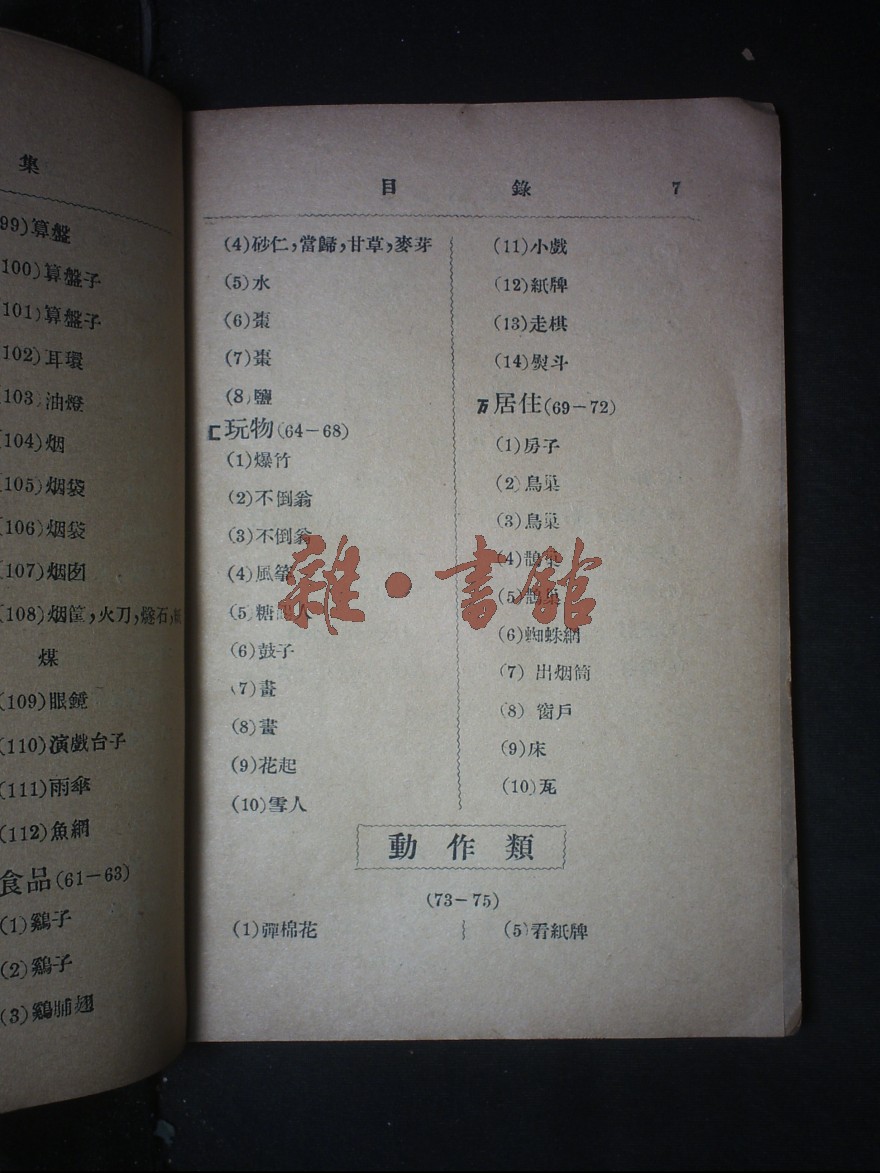 集
99)算盤
100)算盤子
101)算盤子
102)耳環
103)油燈
104)烟
105)烟袋
106)烟袋
107)烟囱
(108)烟筐，火刀，燧石，
煤
(109)眼鏡
(110)演戲台子
(111)雨傘
(112)魚網
食品(61—63)
(1)鷄子
(2)鷄子
(3)鷄脯翅
目 錄 7
(4)砂仁，當歸，甘草，麥芽
(5)水
(6)棗
(7)棗
(8)鹽
ㄈ玩物(64—68)
(1)爆竹
(2)不倒翁
(3)不倒翁
(4)風箏
(5)糖人
(6)鼓子
(7)畫
(8)畫
(9)花起
(10)雪人
(11)小戲
(12)紙牌
(13)走棋
(14)熨斗
ㄞ居住(69—72)
(1)房子
(2)鳥巢
(3)鳥巢
(4)鵲巢
(5)鵲巢
(6)蜘蛛網
(7) 出烟筒
(8) 窗戶
(9)床
(10)瓦
動作類
(73—75)
(1)彈棉花
(5)看紙牌
雜·書館